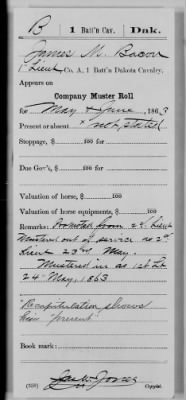 B | 1 Batt'n Cav. | Dak.
James M. Bacon
1 Lieut Co. A, 1 Batt'n Dakota Cavalry.
Appears on
Company Muster Roll
for May & June, 1863
Present or absent * not stated
Stoppage, $ 100 for
Due Gov't, $ 100 for
Valuation of horse, $ 100
Valuation of horse equipments, $ 100
Remarks: Promoted from 2d Lieut
Mustered out of service as 2d
Lieut 23rd May.
Mustered in as 1st Lt
24 May, 1863
*Recapitulation shows
him "present"
Book mark:
(358)
Copyist.